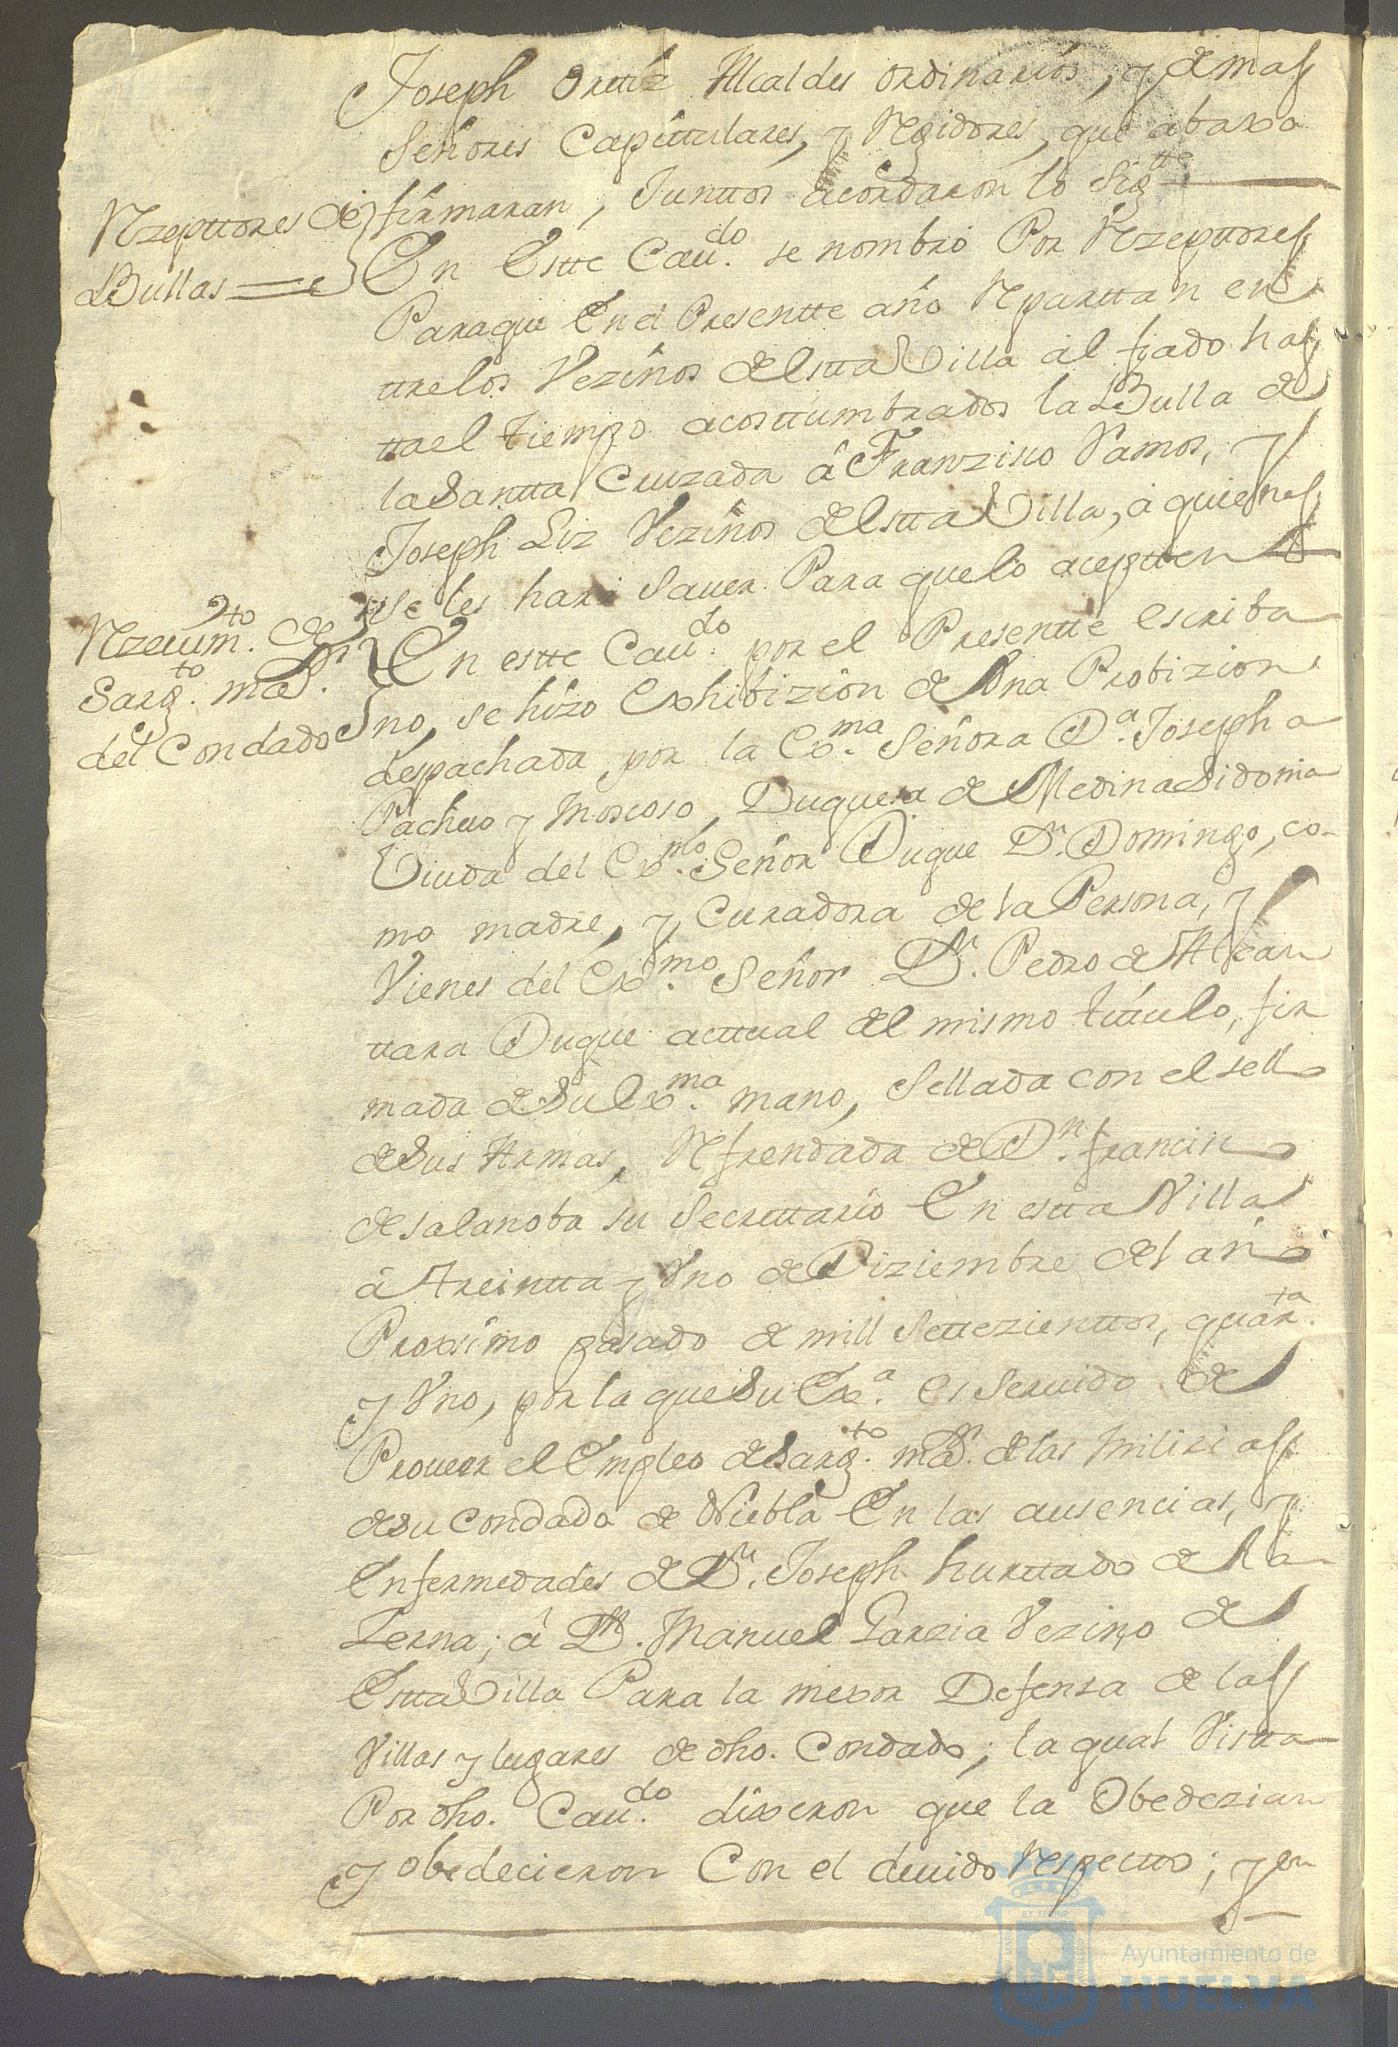 Joseph Orttiz Alcaldes ordinarios, y demas
Señores Capittulares, y Rexidores, que abaxo
firmaran, Junttos acordaron lo Sig.tte
Rzepttores de
Bullas
En Estte Cau.do se nombró Por Rzepttores
Paraque En el Presentte año Reparttan en
ttre los Vezinos de Estta Villa al fiado has
tta el tiempo acosttumbrados la Bulla de
la Santta Cruzada á Franzisco Ramos, y
Joseph Liz Vezinos de Estta Villa, á quienes
se les hará Sauer Para que lo acepten
Rzeuim.to de
Sarg.to ma.r
del Condado
En estte Cau.do por el Presentte escriba
no, se hizo Exhibizion de Vna Probizion
despachada por la Ex.ma Señora D.a Josepha
Pacheco y Moscoso, Duquesa de Medina Sidonia
Viuda del Ex.mo Señor Duque D.n Domingo, co-
mo madre, y Curadora de la Persona, y
Vienes del Ex.mo Señor D.n Pedro de Alcan
ttara Duque acttual del mismo títtulo, fir
mada de Su Ex.ma mano, Sellada con el sello
de Sus Armas, Refrendada de D.n francin
de salanoba su Secrettario En estta Villa
á Treintta y Vno de Diziembre del año
Proximo pasado de mill Settezienttos, quar.ta
y Vno, por la que Su Ex.a es Seruido de
Proueer el Empleo de Sarg.to ma.r de las Milizias
de su Condado de Niebla En las ausencias, y
enfermedades de D.n Joseph hurttado de La
Zerna; á D.n Manuel Garzia Vezino de
Estta Villa Para la mexor Defensa de las
Villas y lugares de dho. Condado; la qual Vistta
Por dho. Cau.do dixeron que la Obedezian
y obedecieron Con el deuido respectto; y en
Ayuntamiento de
HUELVA